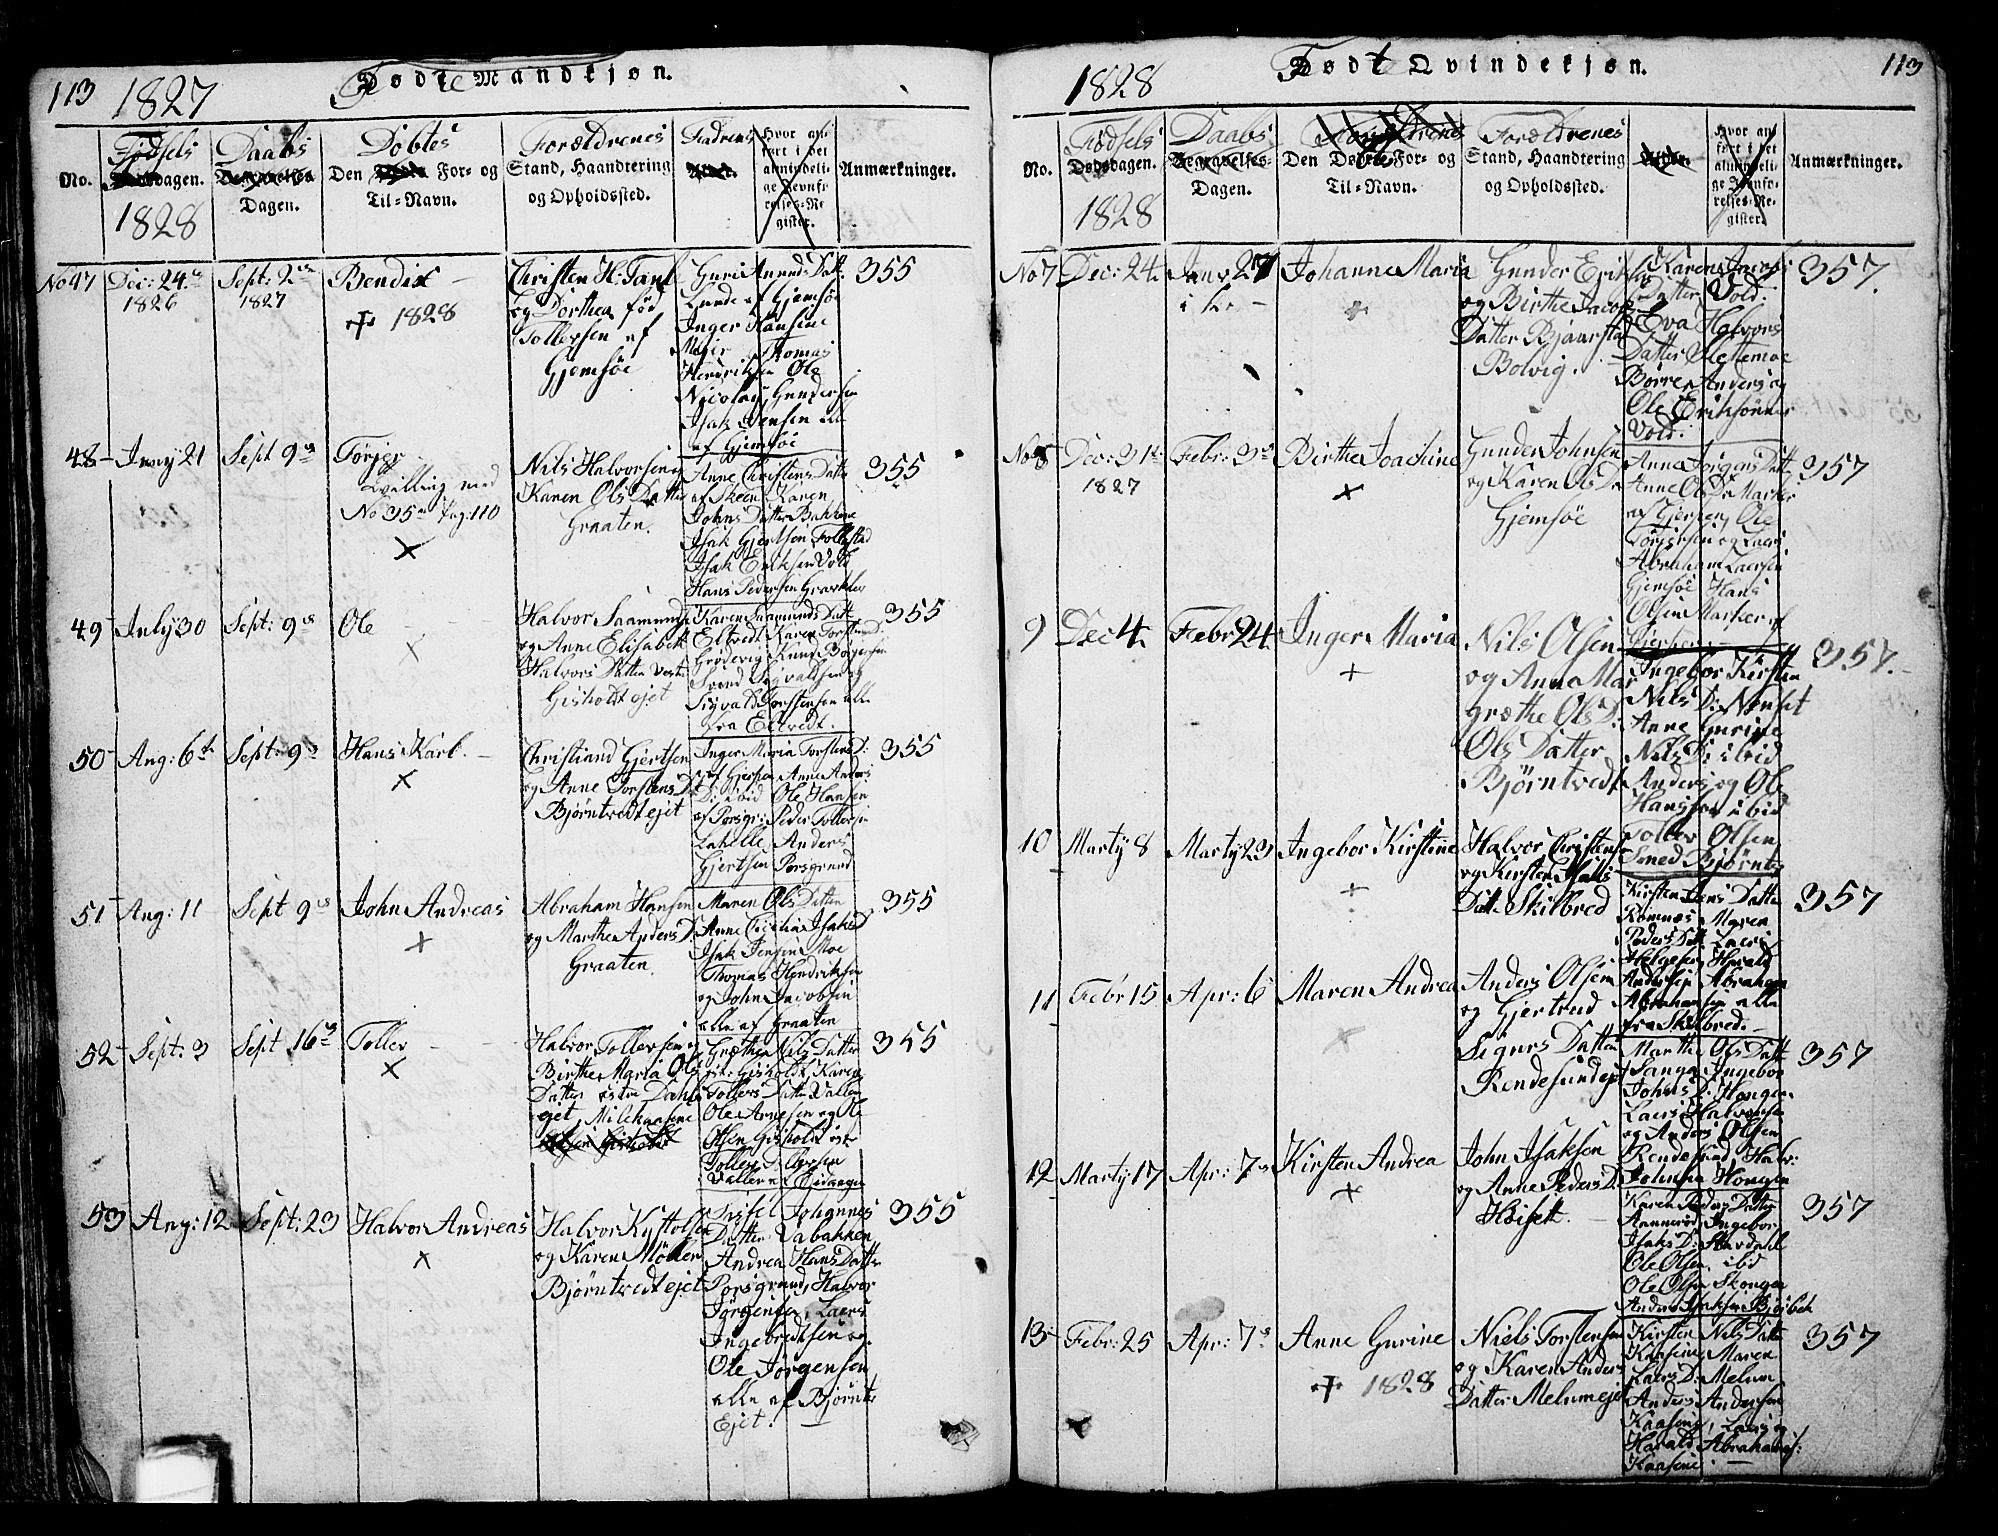 113 1827 Født Mandkjøn.
No.
Fødsels
dagen.
1828
Daabs
Begravelses
Dagen.
Døbtes
Den Dødes For= og
Til=Navn.
Forældrenes
Stand, Haandtering
og Opholdssted.
Fadrenes
Alder.
Hvor an-
ført i det
almindeli-
ge Jevnfø-
relses=Re-
gister.
Anmærkninger.
No 47 Dec: 24
1826
Sept: 2
1827
Bendix
1828
Christen H:
og Dorthea fød
Tollefsen af
Gjemsøe
Guri Amunds Datt:
Lunde af Gjemsøe
Inger Hansine
Mejer Thomas
Hendriksen Ole
Nicolay Gundersen
Isak Jensen alle
af Gjemsøe
355
48 Juny 21
Sept 9
Torjer
Tvilling med
No 35 Pag: 110
Nils Halvorsen og
Karen Ols Datter
Graaten.
Anne Christens Datter
af Skeen Karen
Johns Datter Bakkene
Isak Gjertsen Follestad
Isak Eriksen Vold
Hans Pedersen Graaklev
355
49 July 30
Sept: 9
Ole
Halvor Saamunds:
og Anne Elisabeth
Halvors Datter Vestr
Gisholt ejet
Karen Saamunds Datt
Eltvedt Karen Torstens D:
Grødevig Knud Børgersen
Svend Sigvaldsen og
Sigvald Torstensen alle
fra Eltvedt.
355
50 Aug: 6
Sept: 9
Hans Karl.
Christiand Gjertsen
og Anne Torstens D:
Bjørntvedt ejet
Inger Maria Torstens D:
af Gjerpen Anne Anders
D: ibid Ole Hansen
af Porsgr: Peder Tollefsen
Lahelle Anders
Gjertsen Porsgrund
355
51 Aug: 11
Sept 9
John Andreas
Abraham Hansen
og Marthe Anders D:
Graaten.
Maren Ols Datter
Anne Cicilia Isaks D
Isak Jensen Moe
Thomas Hendriksen
og John Jacobsen
alle af Graaten
355
52 Sept: 3
Sept 16
Tollev
Halvor Tollevsen og
Birthe Maria Ols
Datter østre Dahls
ejet, Milekaasene
Grethe Nils Datter
Gisholt, Karen
Tollevs Datter Valler
Ole Arnesen og Ole
Olsen Gisholt østr
Tollev
Valler af Eidanger
355
53 Aug: 12
Sept: 23
Halvor Andreas
Halvor Kittelsen
og Karen Møller
Bjørntvedt ejet
Sissel Johannes
Datter Labakken
Andrea Hans Datter
Porsgrund, Halvor
Jørgensen, Laers
Ingebredtsen og
Ole Jørgensen
alle af Bjørntv
Ejet.
355
1828 Født Qvindekjøn. 113
No.
Fødsels
Dødsdagen.
1828
Daabs
Begravelses=
Dagen.
Den Dødes For= og
Til=Navn.
Forældrenes
Stand, Haandtering
og Opholdssted.
Alder.
Hvor an-
ført i det
almindeli-
ge Jevnfø-
relses=Re-
gister.
Anmærkninger.
No 7 Dec: 24.
Janv 27
i k.
Johanne Maria
Gunder Eriksen
og Birthe Jacobs
Datter Bjaarsta
Bolvig.
Karen Jacobs
Datter Vold.
Eva Halvors
Datter Slettemoe
Børre Anders og
Ole Eriksønner
Vold.
357.
No 8 Dec: 31
1827
Febr: 3
Birthe Joachine
Gunder Johnsen
og Karen Ols D
Gjemsøe
Anne Jørgens Datt
Anne Ols D: Marker
af Gjerpen, Ole
Torgersen og Laers
Abraham Laersen
Gjemsøe Hans
Olsen Marker af
Gjerpen
357
9 Dec 4.
Febr 24.
Inger Maria
Nils Olsen
og Anne Mar
Grethe Ols D:
Ols Datter
Bjørntvedt
Ingebor Kirstin
Nils D: Nenset
Anne Gurine
Nils D: ibid
Anders og Ole
Hans ibid
Tollev Olsen
Smed Bjørntv
357.
10 Marty 8
Marty 23
Ingebor Kirstine
Halvor Christens
og Kirsten Mads
Datt Skilbred
Kirsten Jens Datte
Romnæs Maren
Peders Datt Laers
Helgesen Harald
Andersen Abraham
Abrahamsen alle
fra Skilbred.
357
11 Febr 15
Apr: 6
Maren Andrea
Anders Olsen
og Gjertrud
Sigurs Datter
Rendesundejet
Marthe Ols Datt
Sanga Ingebor
Johns D: Hongen
Laers Halvorsen
og Anders Olsen
Rendesund Halv:
Johnsen Hongen
357
12 Marty 17
Apr: 7
Kirsten Andrea
John Isaksen
og Anne Peders D:
Høiset.
Karen Peders Datter
Aannerød Ingebor
Isaks D: Stardahl
Ole Olsen ibid
Ole Olsen Skongen
Anders Isaksen Bjøsbek
357
13 Febr: 25
Apr: 7
Anne Gurine
1828
Niels Torstensen
og Karen Anders
Datter Melumejet
Kirsten Nils Datt
Kaasene Maren
Laers D: Melum
Anders Andersen
Kaasene, Laers og
Harald Abrahams:
Kaasene.
357